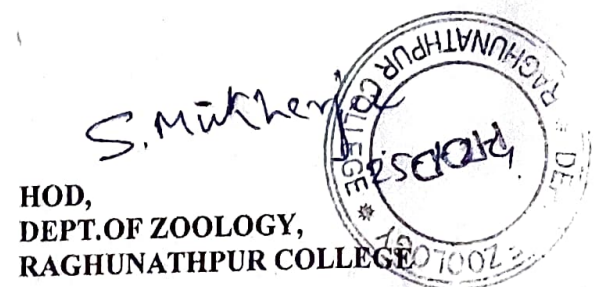 S. Mukherjee
RAGHUNATHPUR COLLEGE * ZOOLOGY * DE
HOD,
DEPT.OF ZOOLOGY,
RAGHUNATHPUR COLLEGE